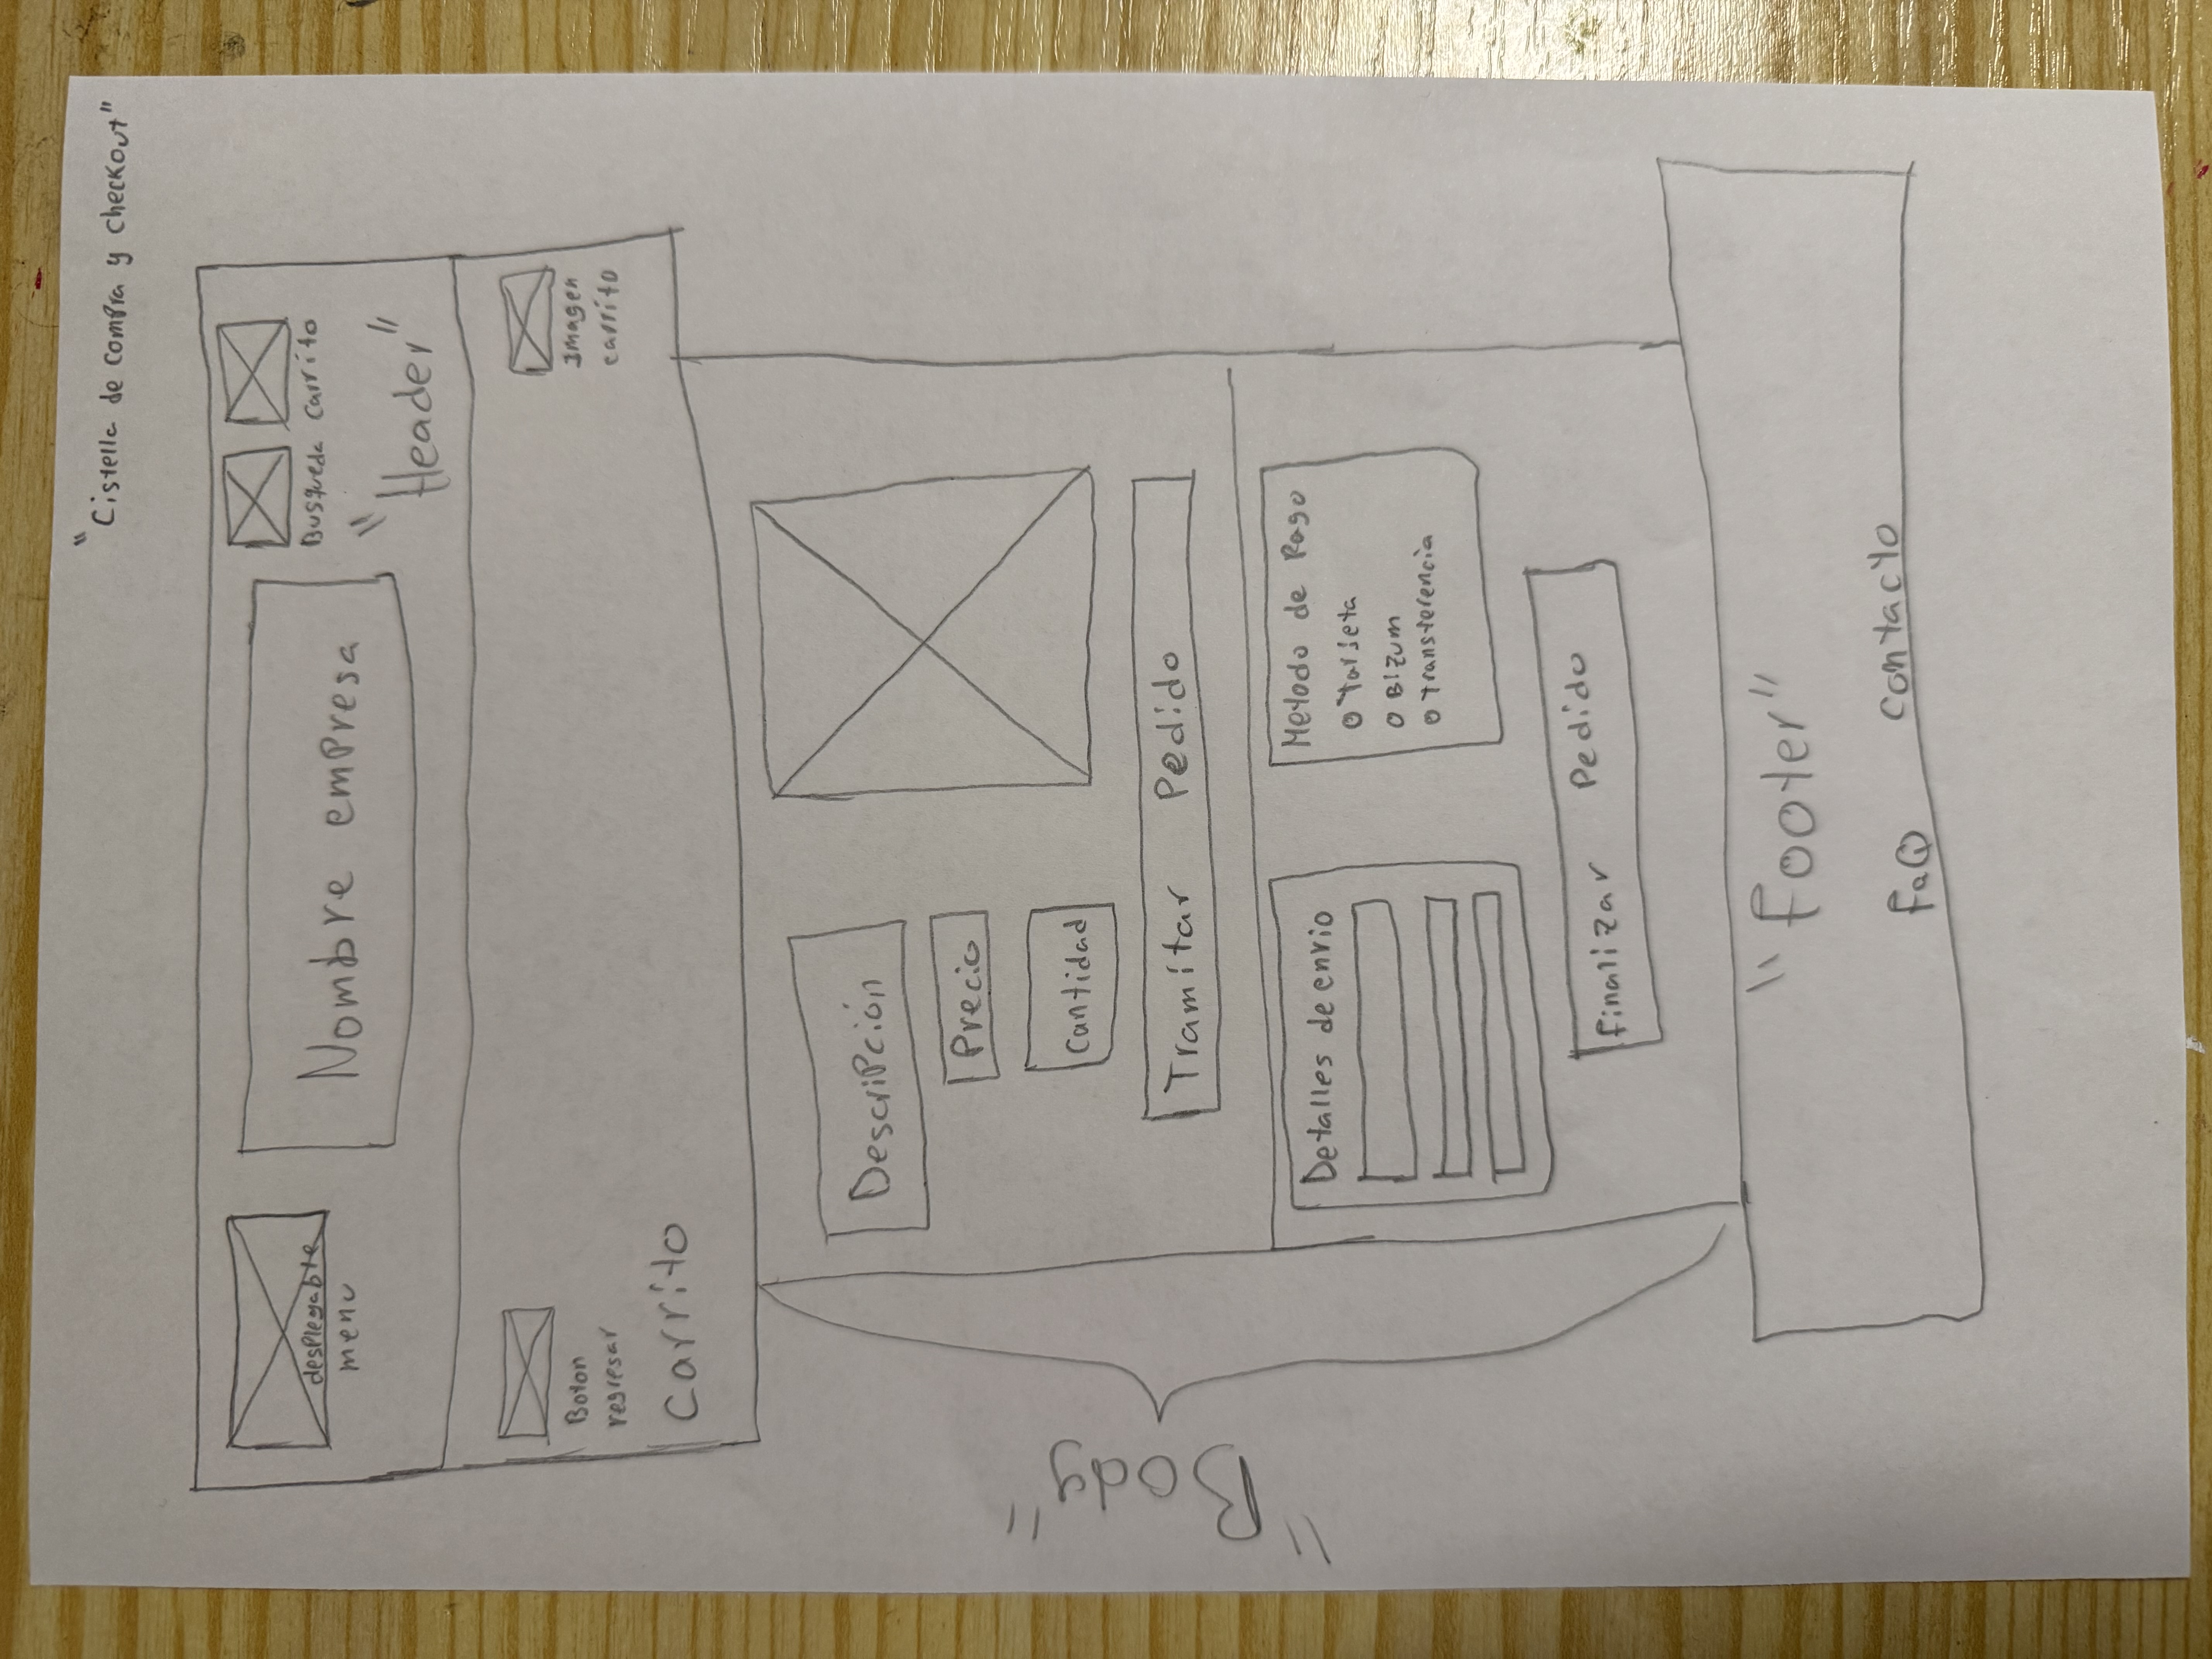 "Cistella de compra y checkout"
desplegable
menu
Nombre empresa
Busqueda Carrito
"Header"
Boton
regresar
Imagen
carrito
Carrito
"Body"
Descripción
Precio
Cantidad
Tramitar Pedido
Detalles de envio
Metodo de Pago
Tarjeta
Bizum
Transferencia
Finalizar Pedido
"Footer"
FaQ Contacto